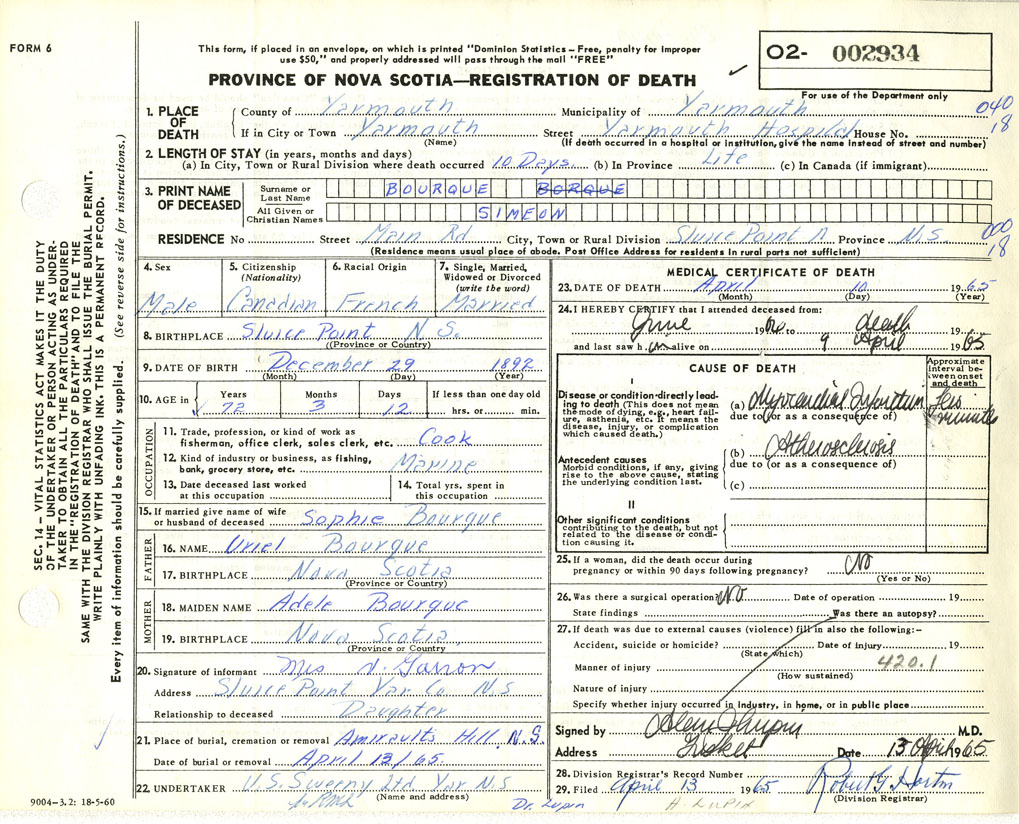 FORM 6
This form, if placed in an envelope, on which is printed "Dominion Statistics – Free, penalty for improper
use $50," and properly addressed will pass through the mail "FREE"
PROVINCE OF NOVA SCOTIA—REGISTRATION OF DEATH
O2- 002934
For use of the Department only
SEC. 14 – VITAL STATISTICS ACT MAKES IT THE DUTY
OF THE UNDERTAKER OR PERSON ACTING AS UNDER-
TAKER TO OBTAIN ALL THE PARTICULARS REQUIRED
IN THE "REGISTRATION OF DEATH" AND TO FILE THE
SAME WITH THE DIVISION REGISTRAR WHO SHALL ISSUE THE BURIAL PERMIT.
WRITE PLAINLY WITH UNFADING INK. THIS IS A PERMANENT RECORD.
Every item of information should be carefully supplied. (See reverse side for instructions.)
1. PLACE OF DEATH
County of Yarmouth Municipality of Yarmouth 040
If in City or Town Yarmouth Street Yarmouth Hospital House No. 18
(Name) (If death occurred in a hospital or institution, give the name instead of street and number)
2. LENGTH OF STAY (in years, months and days)
(a) In City, Town or Rural Division where death occurred 10 Days (b) In Province Life (c) In Canada (if immigrant)
3. PRINT NAME OF DECEASED
Surname or Last Name BOURQUE BORQUE
All Given or Christian Names SIMEON
RESIDENCE No Street Main Rd City, Town or Rural Division Sluice Point Province N.S. 000 18
(Residence means usual place of abode. Post Office Address for residents in rural parts not sufficient)
4. Sex Male
5. Citizenship (Nationality) Canadian
6. Racial Origin French
7. Single, Married, Widowed or Divorced (write the word) Married
8. BIRTHPLACE Sluice Point N.S.
(Province or Country)
9. DATE OF BIRTH December 29 1892
(Month) (Day) (Year)
10. AGE in Years 72 Months 3 Days 12 If less than one day old hrs. or min.
OCCUPATION
11. Trade, profession, or kind of work as
fisherman, office clerk, sales clerk, etc. Cook
12. Kind of industry or business, as fishing,
bank, grocery store, etc. Marine
13. Date deceased last worked
at this occupation
14. Total yrs. spent in
this occupation
15. If married give name of wife
or husband of deceased Sophie Bourque
FATHER
16. NAME Uriel Bourque
17. BIRTHPLACE Nova Scotia
(Province or Country)
MOTHER
18. MAIDEN NAME Adele Bourque
19. BIRTHPLACE Nova Scotia
(Province or Country)
20. Signature of informant Mrs
Address Sluice Point Yar Co N.S
Relationship to deceased Daughter
21. Place of burial, cremation or removal Amiraults Hill, N.S.
Date of burial or removal April 13/65
22. UNDERTAKER U.S. Sweeny Ltd Yar N S
(Name and address)
9004–3.2: 18-5-60
Dr. Lupin
MEDICAL CERTIFICATE OF DEATH
23. DATE OF DEATH April 10 1965
(Month) (Day) (Year)
24. I HEREBY CERTIFY that I attended deceased from:
June 19 to death 19
and last saw him alive on 9 April 1965
CAUSE OF DEATH
Approximate interval between onset and death
I
Disease or condition directly leading
to death (This does not mean
the mode of dying, e.g., heart failure,
asthenia, etc. It means the
disease, injury, or complication
which caused death.)
(a) Myocardial Infarction Few minutes
due to (or as a consequence of)
Antecedent causes
Morbid conditions, if any, giving
rise to the above cause, stating
the underlying condition last.
(b) Atherosclerosis
due to (or as a consequence of)
(c)
II
Other significant conditions
contributing to the death, but not
related to the disease or condition
causing it.
25. If a woman, did the death occur during
pregnancy or within 90 days following pregnancy? No
(Yes or No)
26. Was there a surgical operation? No Date of operation 19
State findings Was there an autopsy?
27. If death was due to external causes (violence) fill in also the following:–
Accident, suicide or homicide? Date of injury 19
(State which)
Manner of injury 420.1
(How sustained)
Nature of injury
Specify whether injury occurred in industry, in home, or in public place
Signed by M.D.
Address Tusket Date 13 April 1965
28. Division Registrar's Record Number
29. Filed April 13 1965 Robert G Horton
(Division Registrar)
A LUPIN